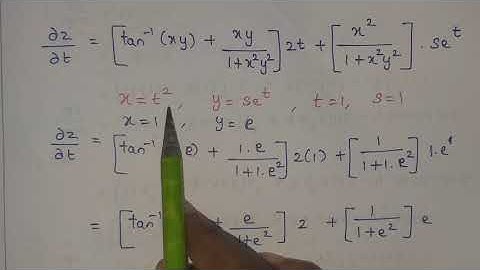 ∂z/∂t = [tan⁻¹(xy) + xy/(1+x²y²)] 2t + [x²/(1+x²y²)] . se^t
x = t² , y = se^t , t = 1, s = 1
x = 1 , y = e
∂z/∂t = [tan⁻¹ e) + 1.e/(1+1.e²)] 2(1) + [1/(1+1.e²)] 1.e¹
= [tan⁻¹ + e/(1+e²)] 2 + [1/(1+e²)] e